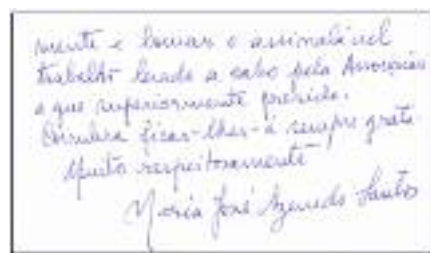 mente e louvar o assinalável
trabalho levado a cabo pela Associação
a que superiormente preside.
Coimbra ficar-lhes-á sempre grata.
Muito respeitosamente
Maria José Azevedo Santos